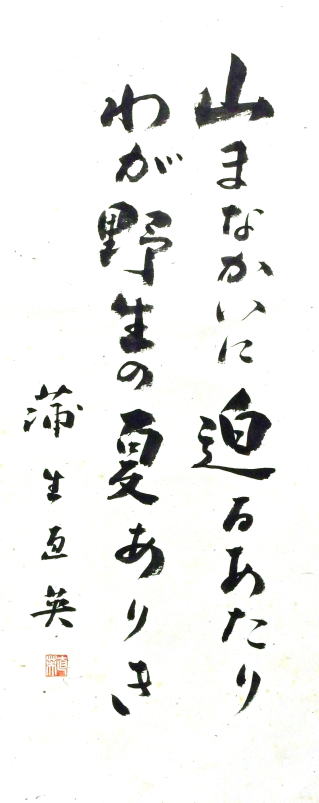 山まなかいに迫るあたり
わが野生の夏ありき
蒲生直英